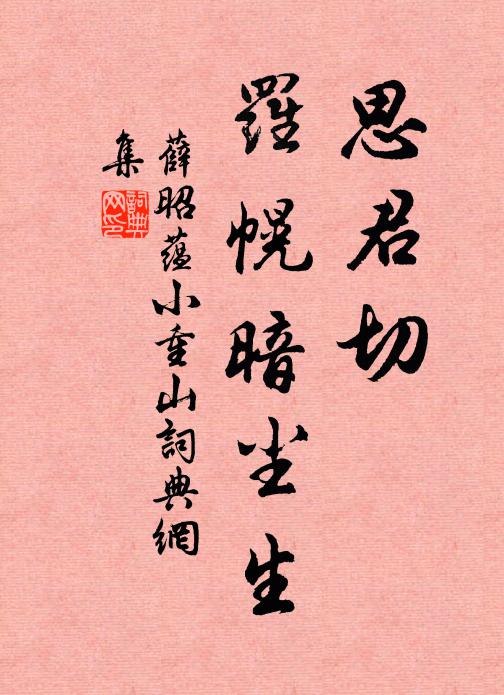 思君切
羅幌暗尘生
薛昭蕴小重山詞典網
集
詞典网印